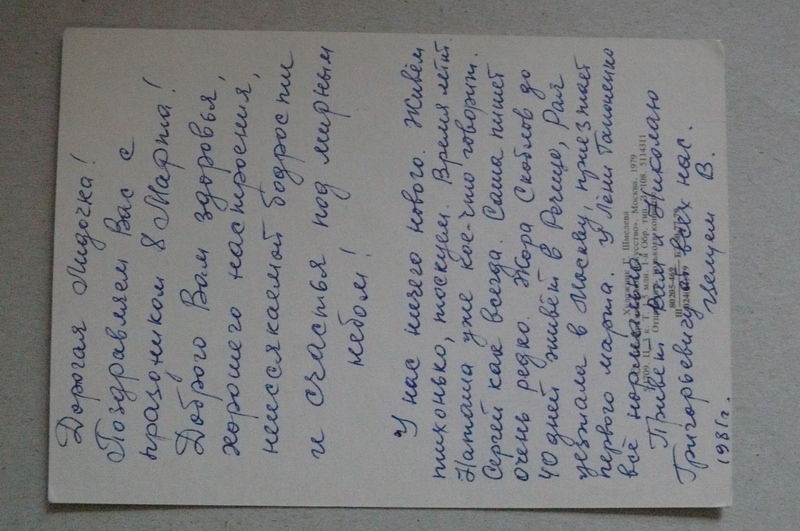 Дорогая Лидочка!
Поздравляем Вас с
праздником 8 Марта!
Доброго Вам здоровья,
хорошего настроения,
неиссякаемой бодрости
и счастья под мирным
небом!
У нас ничего нового. Живём
тихонько, тоскуем. Время летит.
Наташа уже кое-что говорит.
Сергей как всегда. Саша пишет
очень редко. Жора Скоблов до
40 дней живёт в Речице, Рая
уезжала в Москву, приезжает
первого марта. У Лёни
всё нормально.
Привет Вам и Николаю
Григорьевичу от всех нас.
Целуем В.
1981г.
Художник Г. Шмелева
Москва. 1979
80205-469